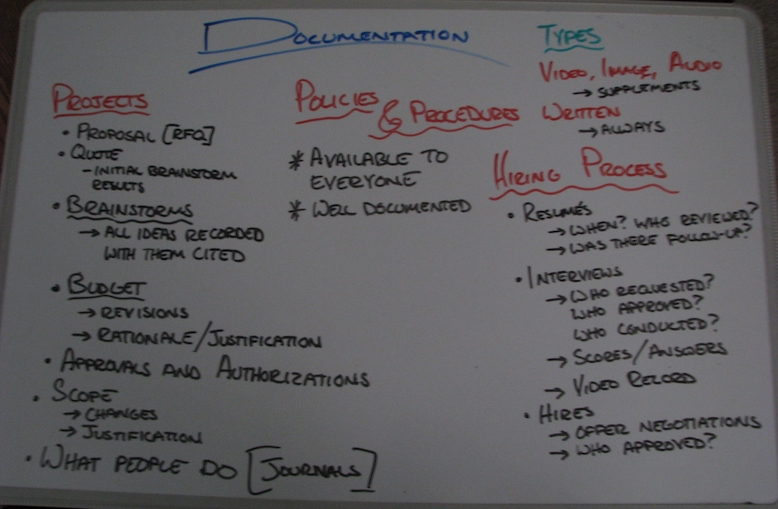 DOCUMENTATION
PROJECTS
• PROPOSAL [RFQ]
• QUOTE
- INITIAL BRAINSTORM
RESULTS
• BRAINSTORMS
→ ALL IDEAS RECORDED
WITH THEM CITED
• BUDGET
→ REVISIONS
→ RATIONALE/JUSTIFICATION
• APPROVALS AND AUTHORIZATIONS
• SCOPE
→ CHANGES
→ JUSTIFICATION
• WHAT PEOPLE DO [JOURNALS]
POLICIES
& PROCEDURES
* AVAILABLE TO
EVERYONE
* WELL DOCUMENTED
TYPES
VIDEO, IMAGE, AUDIO
→ SUPPLEMENTS
WRITTEN
→ ALWAYS
HIRING PROCESS
• RESUMÉS
→ WHEN? WHO REVIEWED?
→ WAS THERE FOLLOW-UP?
• INTERVIEWS
→ WHO REQUESTED?
WHO APPROVED?
WHO CONDUCTED?
→ SCORES/ANSWERS
→ VIDEO RECORD
• HIRES
→ OFFER NEGOTIATIONS
→ WHO APPROVED?